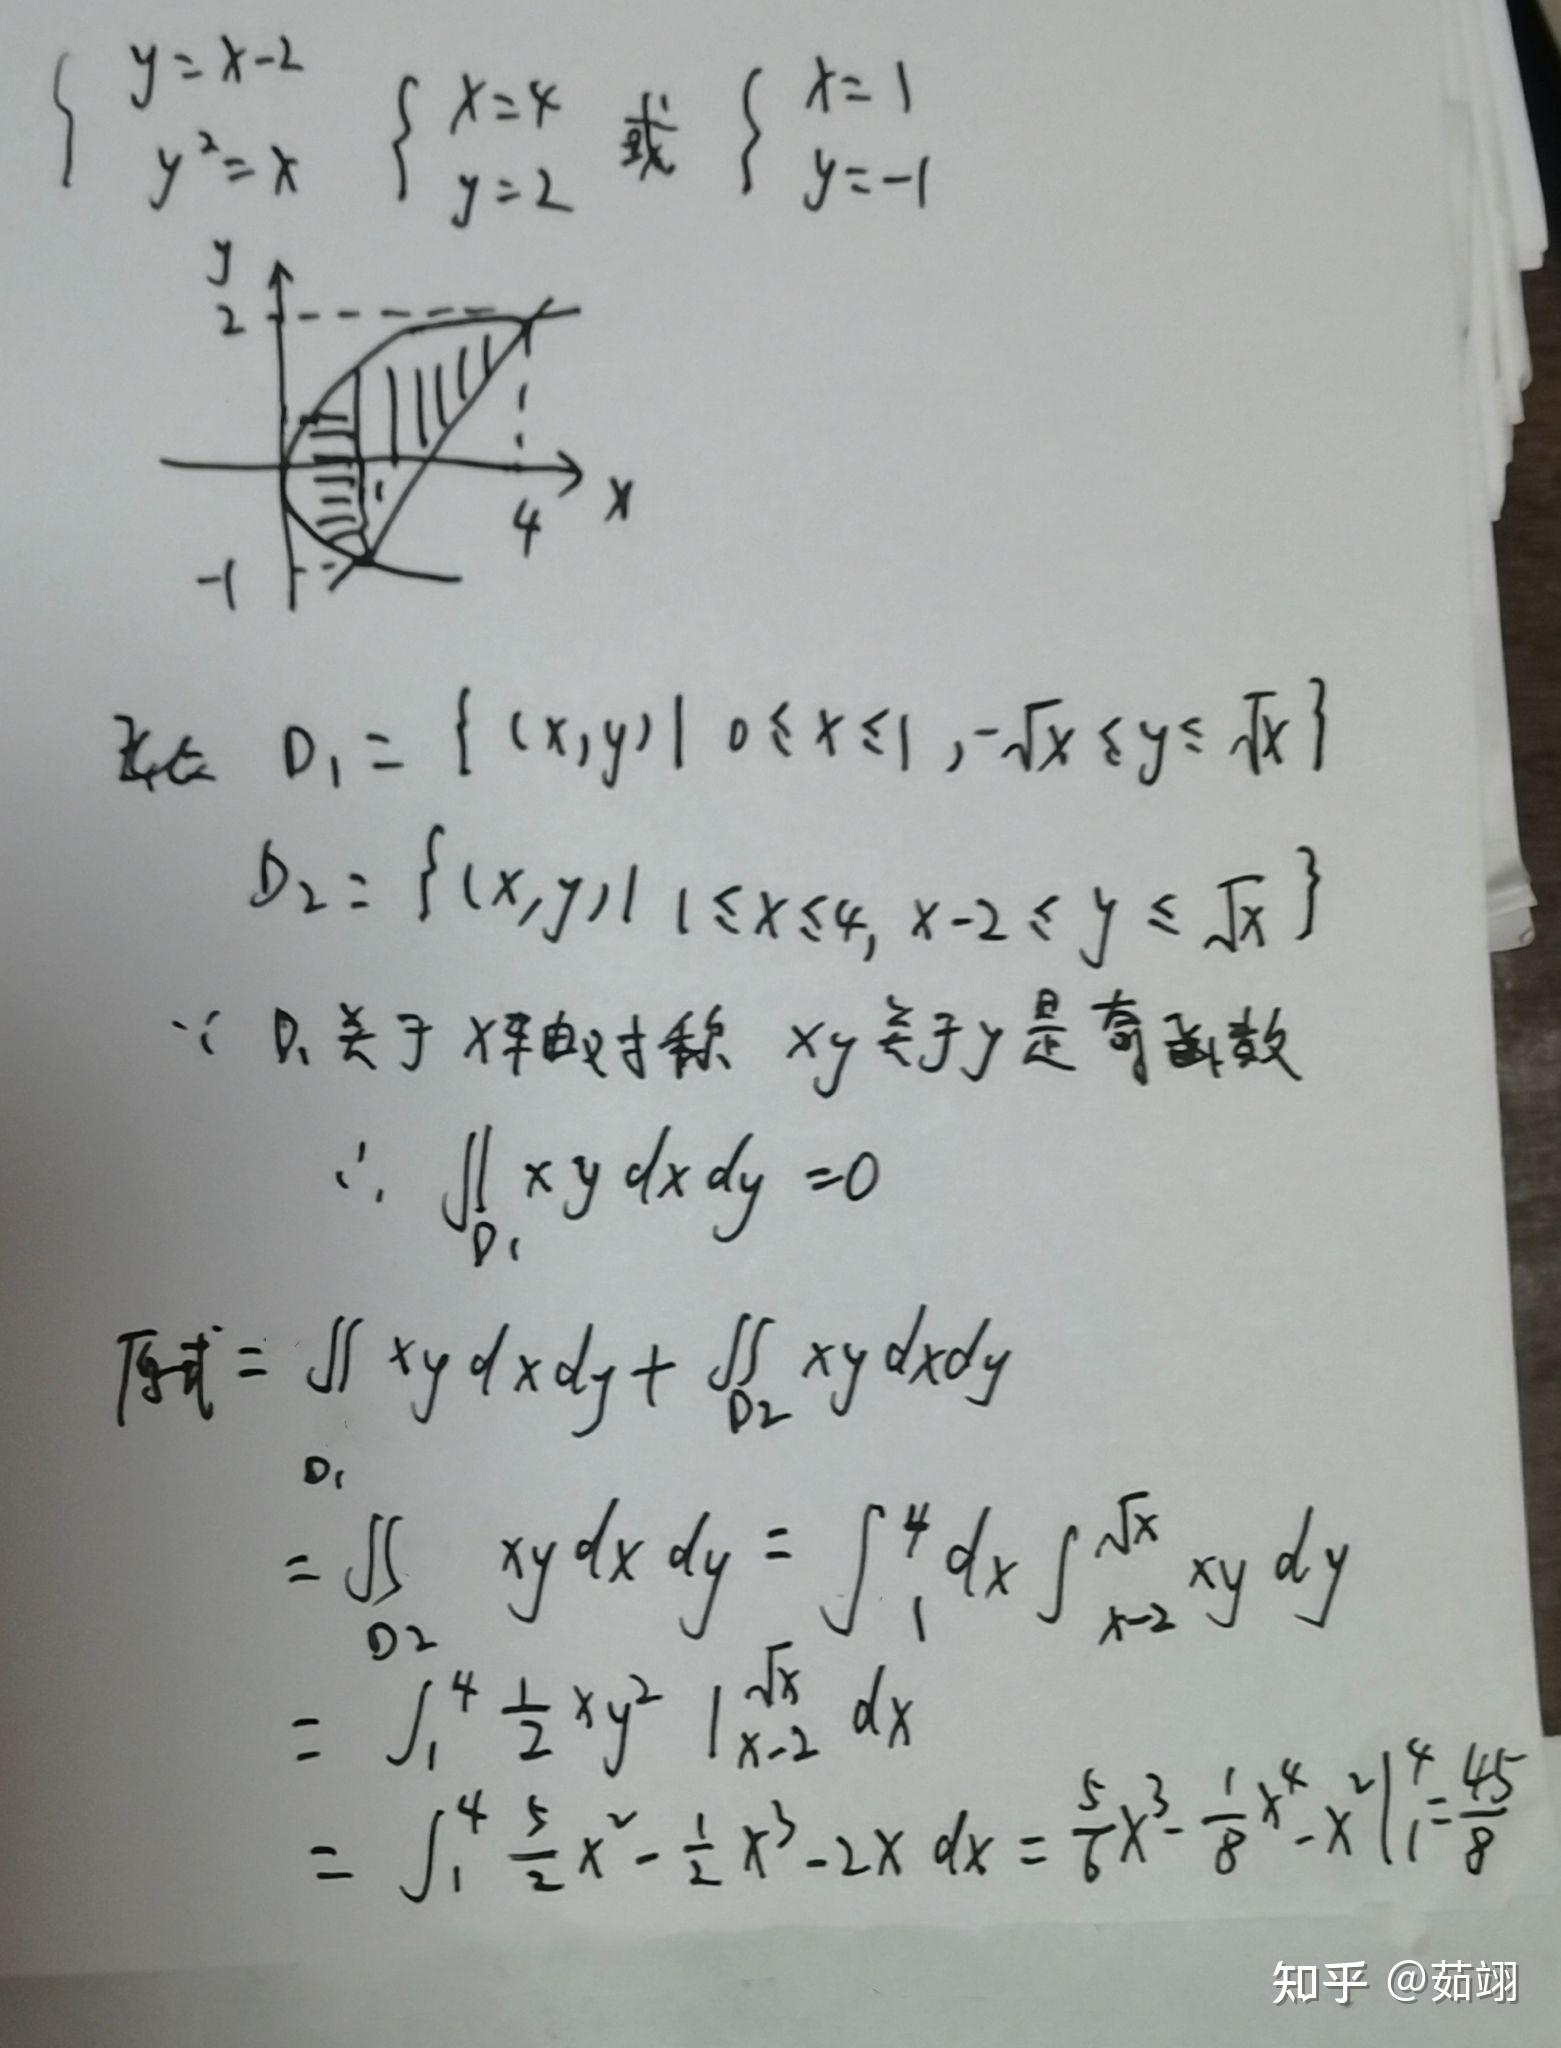 { y=x-2 { x=4 或 { x=1
y²=x y=2 y=-1
y
2
1
4 x
-1
D₁={(x,y)| 0≤x≤1,-√x≤y≤√x}
D₂={(x,y)| 1≤x≤4, x-2≤y≤√x}
∵ D₁关于x轴对称 xy关于y是奇函数
∴ ∬_D₁ xydxdy=0
原式=∬_D₁ xydxdy+∬_D2 xydxdy
=∬_D2 xydxdy=∫₁⁴dx∫_{x-2}^{√x} xydy
=∫₁⁴ 1/2 xy² |_{x-2}^{√x} dx
=∫₁⁴ 5/2 x²-1/2 x³-2x dx=5/6 x³-1/8 x⁴-x²|₁⁴=45/8
知乎 @茹翊